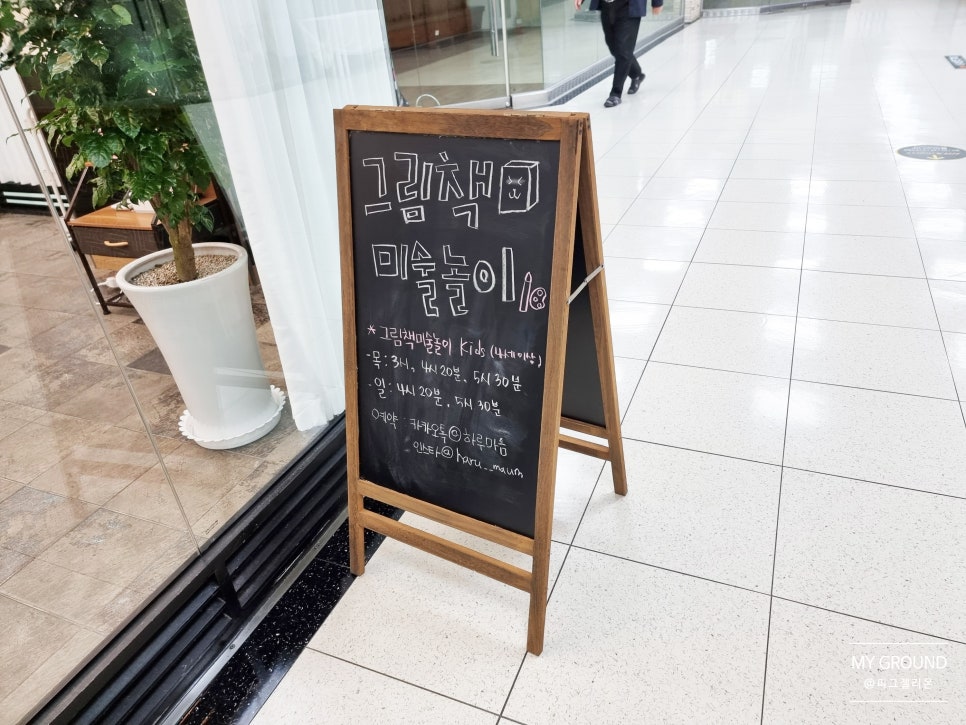 그림책
미술놀이
* 그림책미술놀이 Kids (4세이상)
- 목: 3시, 4시 20분, 5시 30분
- 일: 4시 20분, 5시 30분
예약 카카오톡@하루마음
인스타@haru__maum
MY GROUND
@피그말리온